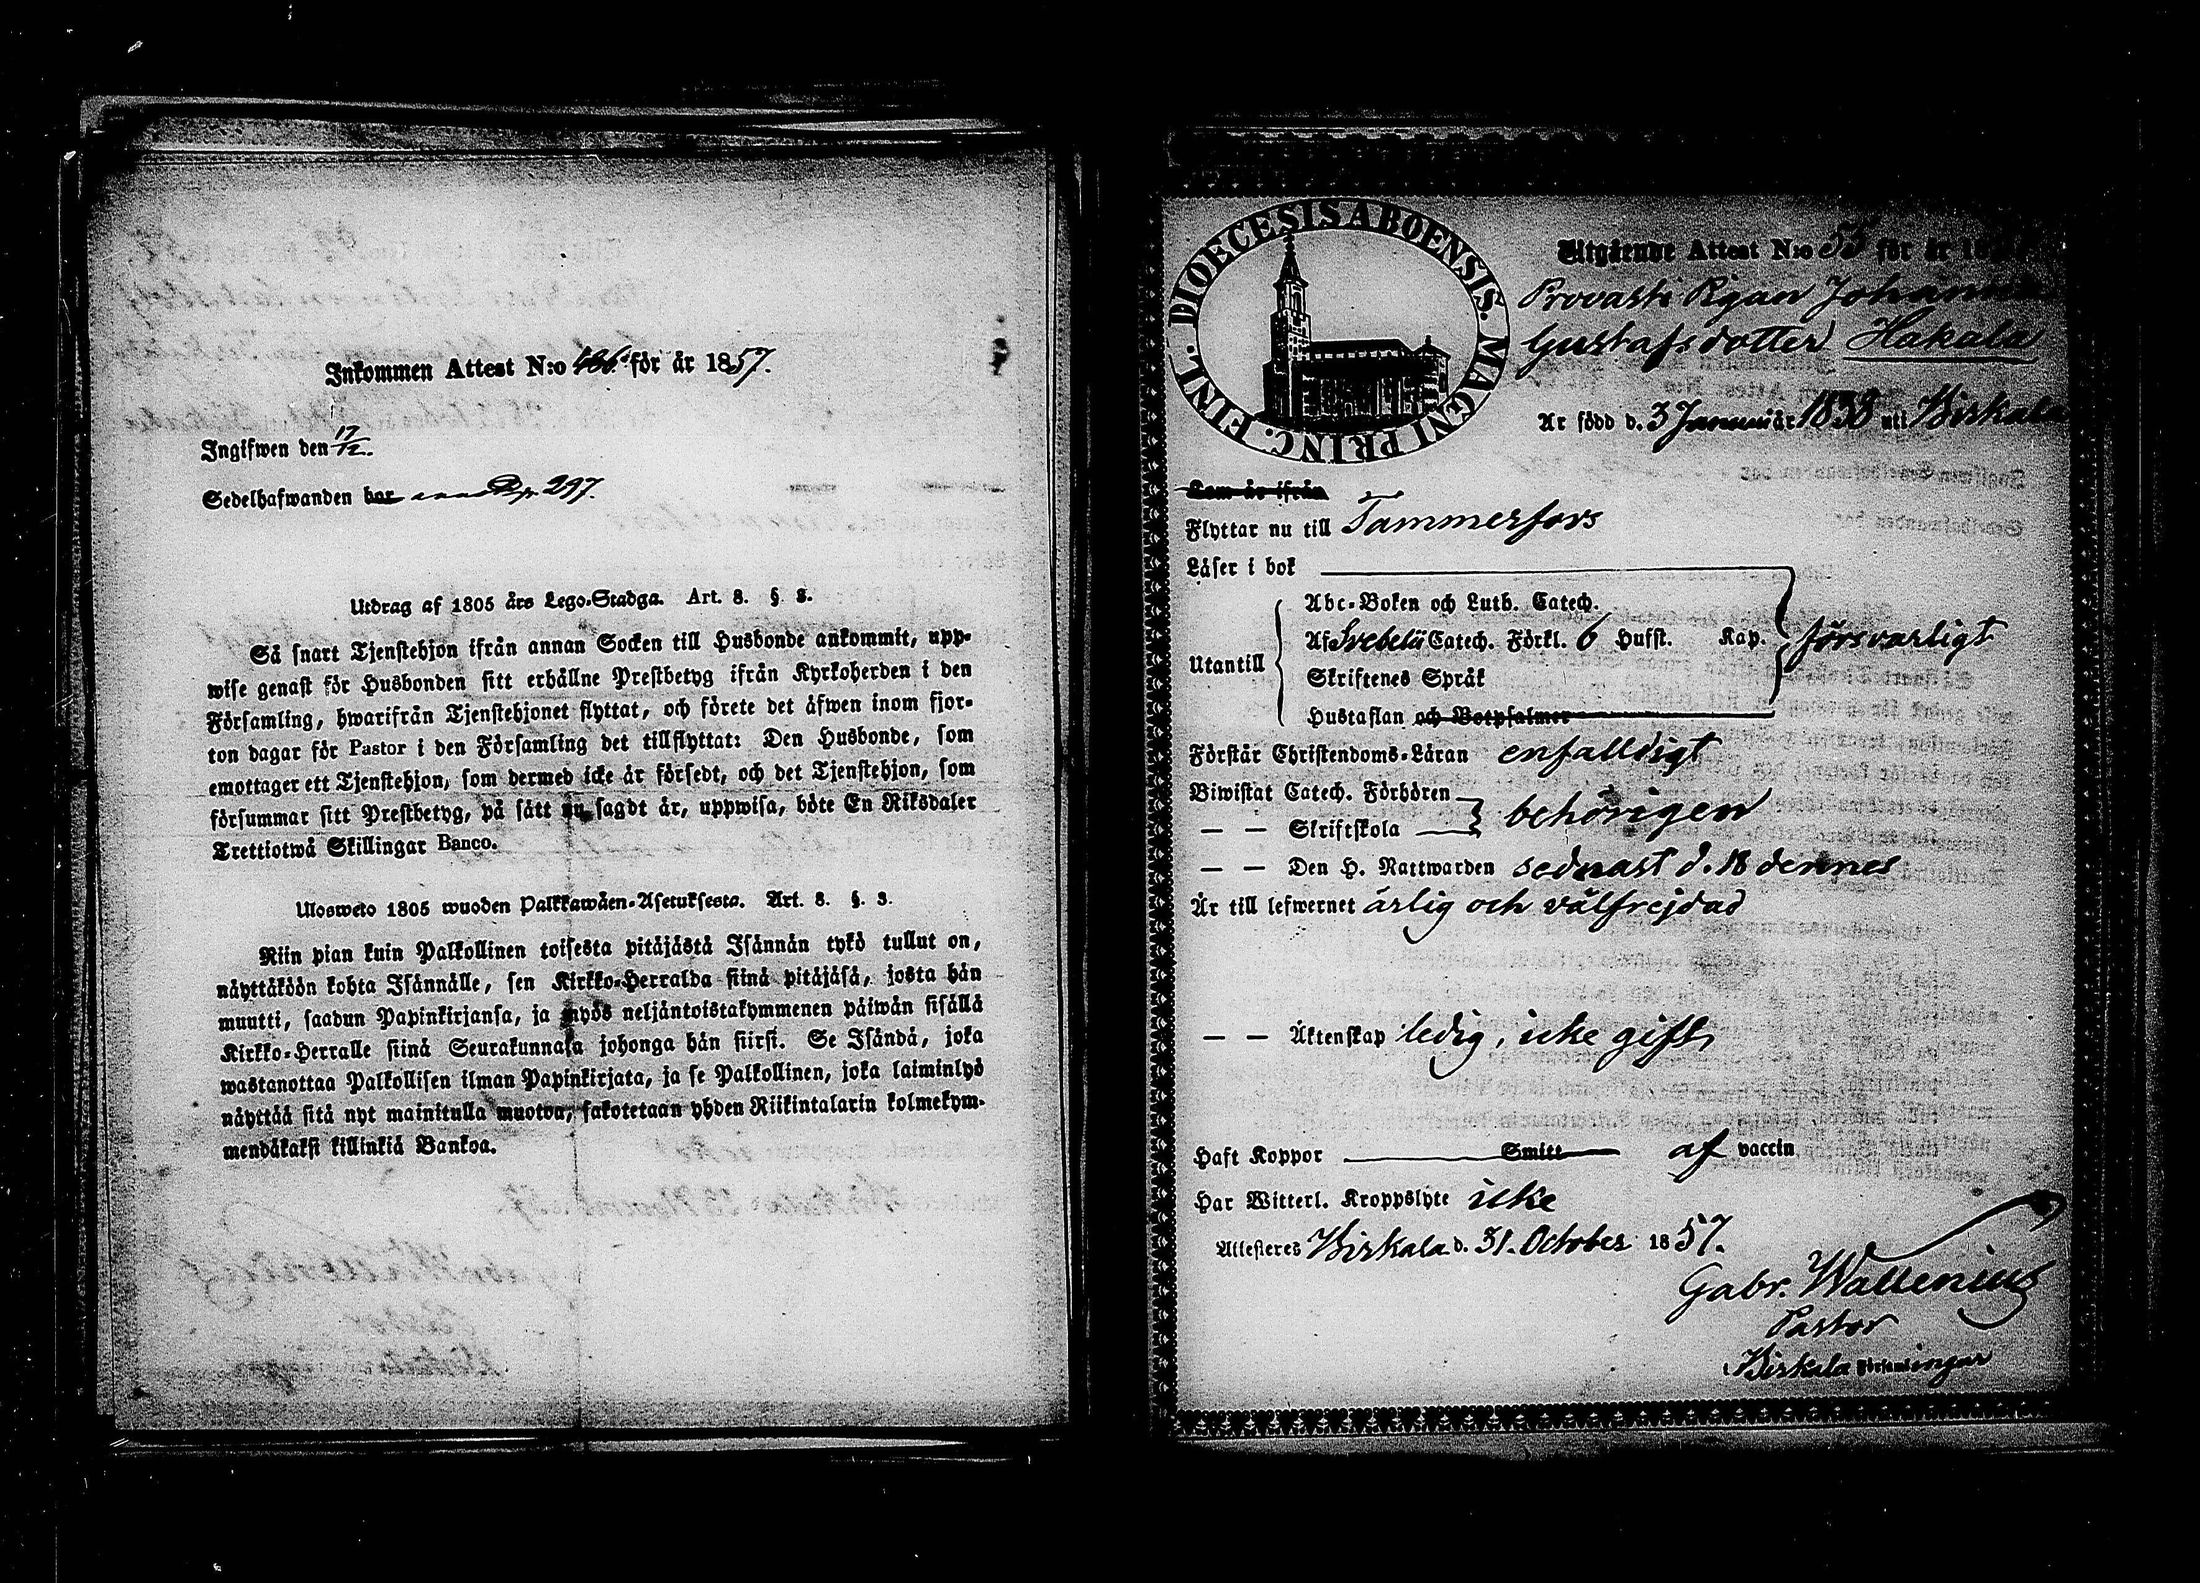 Inkommen Attest N:o för år 1857.
Ingifwen den 17/12.
Sedelhafwanden har p. 297.
Utdrag af 1805 års Lego-Stadga. Art. 8. §. 3.
Så snart Tjenstehjon ifrån annan Socken till Husbonde ankommit, upp-
wise genast för Husbonden sitt erhållne Prestbetyg ifrån Kyrkoherden i den
Församling, hwarifrån Tjenstehjonet flyttat, och förete det äfwen inom fjor-
ton dagar för Pastor i den Församling det tillflyttat: Den Husbonde, som
emottager ett Tjenstehjon, som dermed icke är försedt, och det Tjenstehjon, som
försummar sitt Prestbetyg, på sätt nu sagdt är, uppwisa, böte En Riksdaler
Trettiotwå Skillingar Banco.
Ulosweto 1805 wuoden Palkkawäen-Asetuksesta. Art. 8. §. 3.
Niin pian kuin Palkollinen toisesta pitäjästä Isännän tykö tullut on,
näyttäköön kohta Isännälle, sen Kirkko-Herralda siinä pitäjäsä, josta hän
muutti, saadun Papinkirjansa, ja myös neljäntoistakymmenen päiwän sisällä
Kirkko-Herralle siinä Seurakunnasa johonga hän siirst. Se Isändä, joka
wastanottaa Palkollisen ilman Papinkirjata, ja se Palkollinen, joka laiminlyö
näyttää sitä nyt mainitulla muotoa, sakotetaan yhden Riikintalarin kolmekym-
mendäkaksi killinkiä Bankoa.
DIOECESIS ABOENSIS. MAGNI PRINC. FINL.
Utgående Attest N:o 55 för år 18
Provasti Pigan Johanna
Gustafsdotter Hakala
Är född d. 3 Januari år 1838 uti Birkala
Som är ifrån
Flyttar nu till Tammerfors
Läser i bok
Abc-Boken och Luth. Catech.
Utantill Af Svebelii Catech. Förkl. 6 Hufst. Kap. försvarligt
Skriftenes Språk
Hustaflan och Botpsalmer
Förstår Christendoms-Läran enfalldigt
Biwistat Catech. Förhören
— — Skriftskola behörigen
— — Den H. Nattwarden sednast d. 18 dennes
Är till lefwernet ärlig och välfrejdad
— — Äktenskap ledig, icke gift,
Haft Koppor Smitt af vaccin
Har Witterl. Kroppslyte icke
Attesteres Birkala d. 31. October 1857.
Gabr. Wallenius
Pastor
Birkala Församlingar